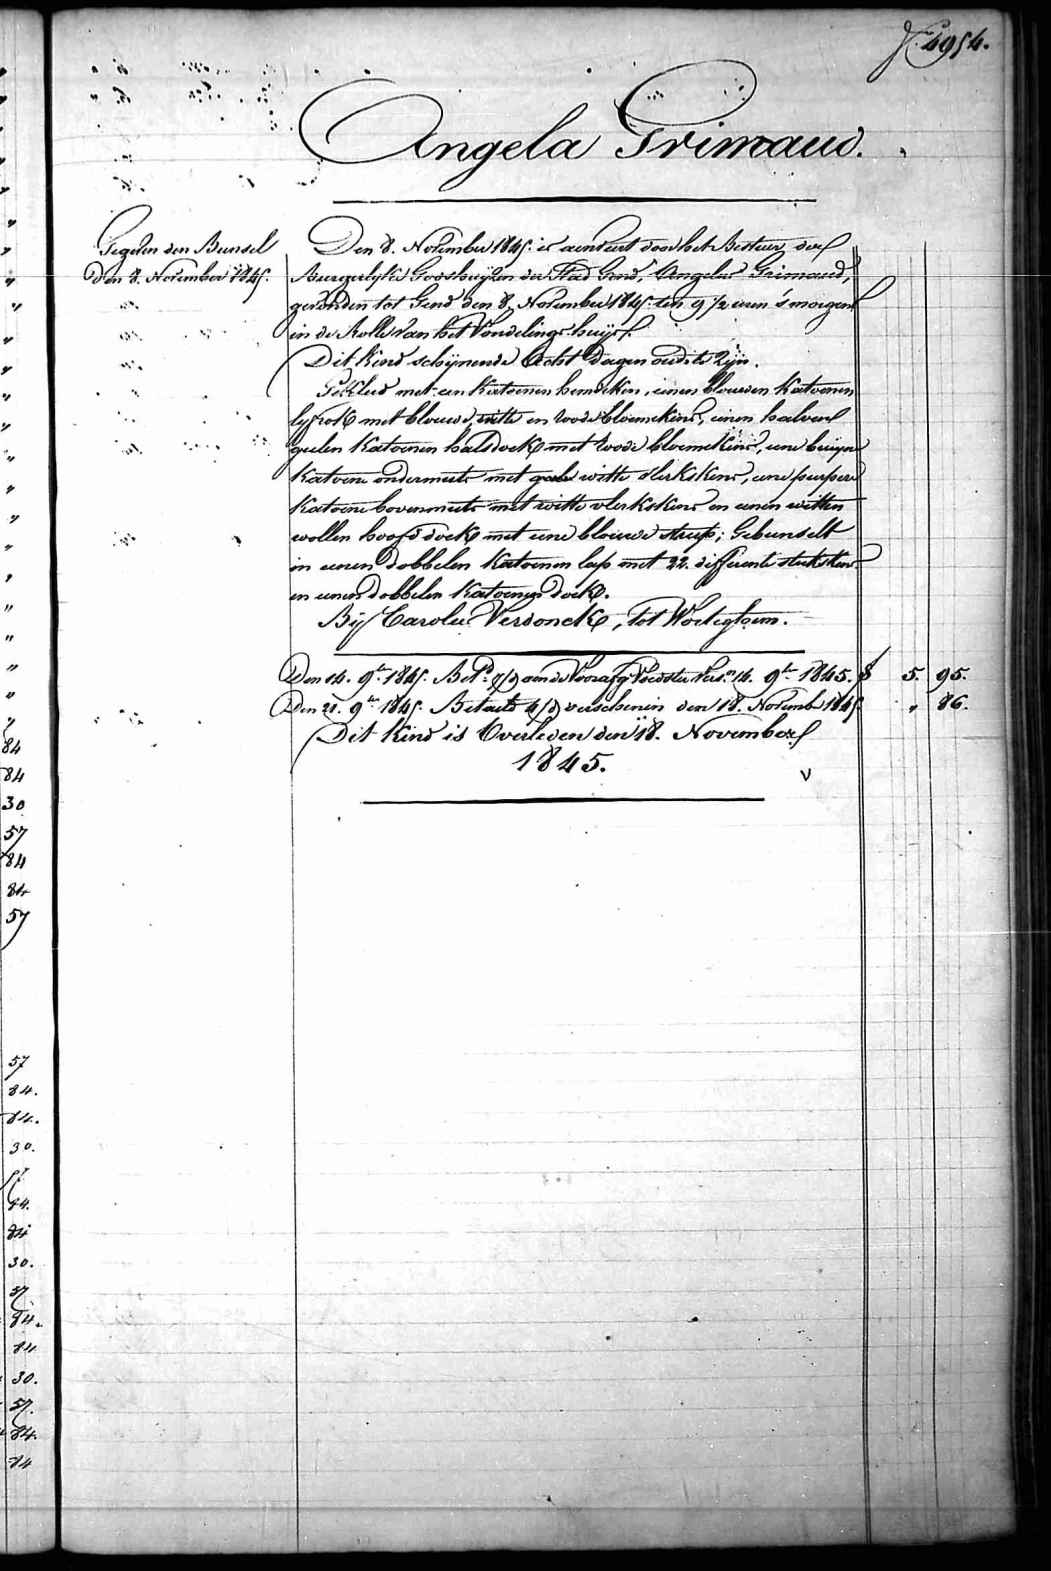 N.º 4954.
Angela Grimaud.
Gegeven den Bunsel
den 8. November 1845.
Den 8. November 1845. is aenveert door het Bestuer der
Burgerlyke Godshuijzen der Stad Gend, Angela Grimaud,
gevonden tot Gend den 8. November 1845. ten 9 1/2 uren 's morgens
in de Rolle van het Vondelingshuijs.
Dit kind schijnende Acht dagen oud te zijn.
Gekleed met een katoenen hemdeken, eenen blouwen katoenen
lyfrok met blouwe, witte en roode bloemekens, eenen halven
geelen katoenen halsdoek met roode bloemekens, eene bruijne
katoene ondermuts met witte vlerkskens, eene purpere
katoene bovenmuts met witte vlerkskens en eenen witten
wollen hoofddoek met eene blouwe streep; Gebunselt
in eenen dobbelen katoenen lap met 22. differente stukskens
en eenen dobbelen katoenen doek.
Bij Carolus Verdonck, tot Wortegem.
Den 14. 9.br 1845. Bet.d aen de Voorz. Voedster Vers.n 14. 9.br 1845. 5. 95.
Den 21. 9.br 1845. Betaeld verschenen den 18. Novemb 1845. " 86.
Dit Kind is Overleden den 18. November
1845.
v
84
84
30
57
84
84
57
57
84.
84.
30.
57
84.
84
30.
57
84.
84
30.
57.
84.
84